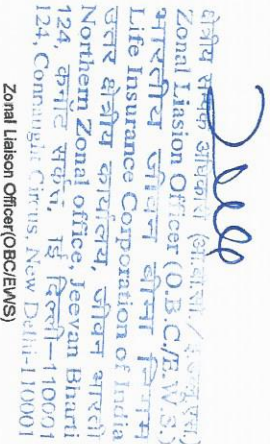 क्षेत्रीय सम्पर्क अधिकारी
Zonal Liasion Officer (O.B.C./E.W.S.)
भारतीय जीवन बीमा निगम
Life Insurance Corporation of India
उत्तर क्षेत्रीय कार्यालय, जीवन भारती
Northern Zonal office, Jeevan Bharti
124, कनाट सर्कस, नई दिल्ली-110001
124, Connaught Circus, New Delhi-110001
Zonal Liaison Officer(OBC/EWS)